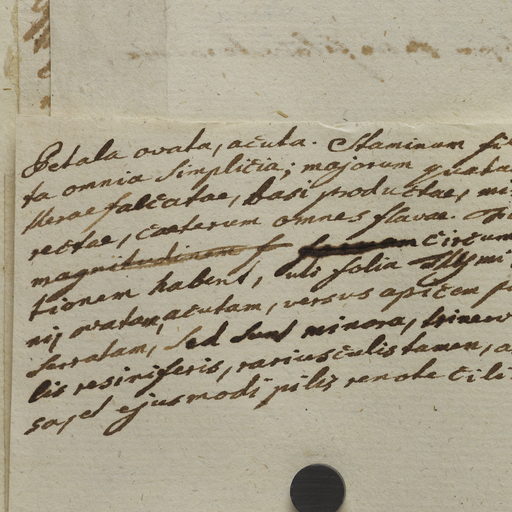 Petala ovata, acuta. Staminum fi
ta omnia simplicia; majorum quatu
therae falcatae, basi productae, mi
rectae, caeterum omnes flavae. Fo
magnitudinem f circum
tionem habent, uti folia Thymi
ni, ovatam, acutam, versus apicem
serratam, sed sunt minora, trinerv
lis resiniferis, rariusculis tamen,
sa, et ejusmodi pilis remote cili